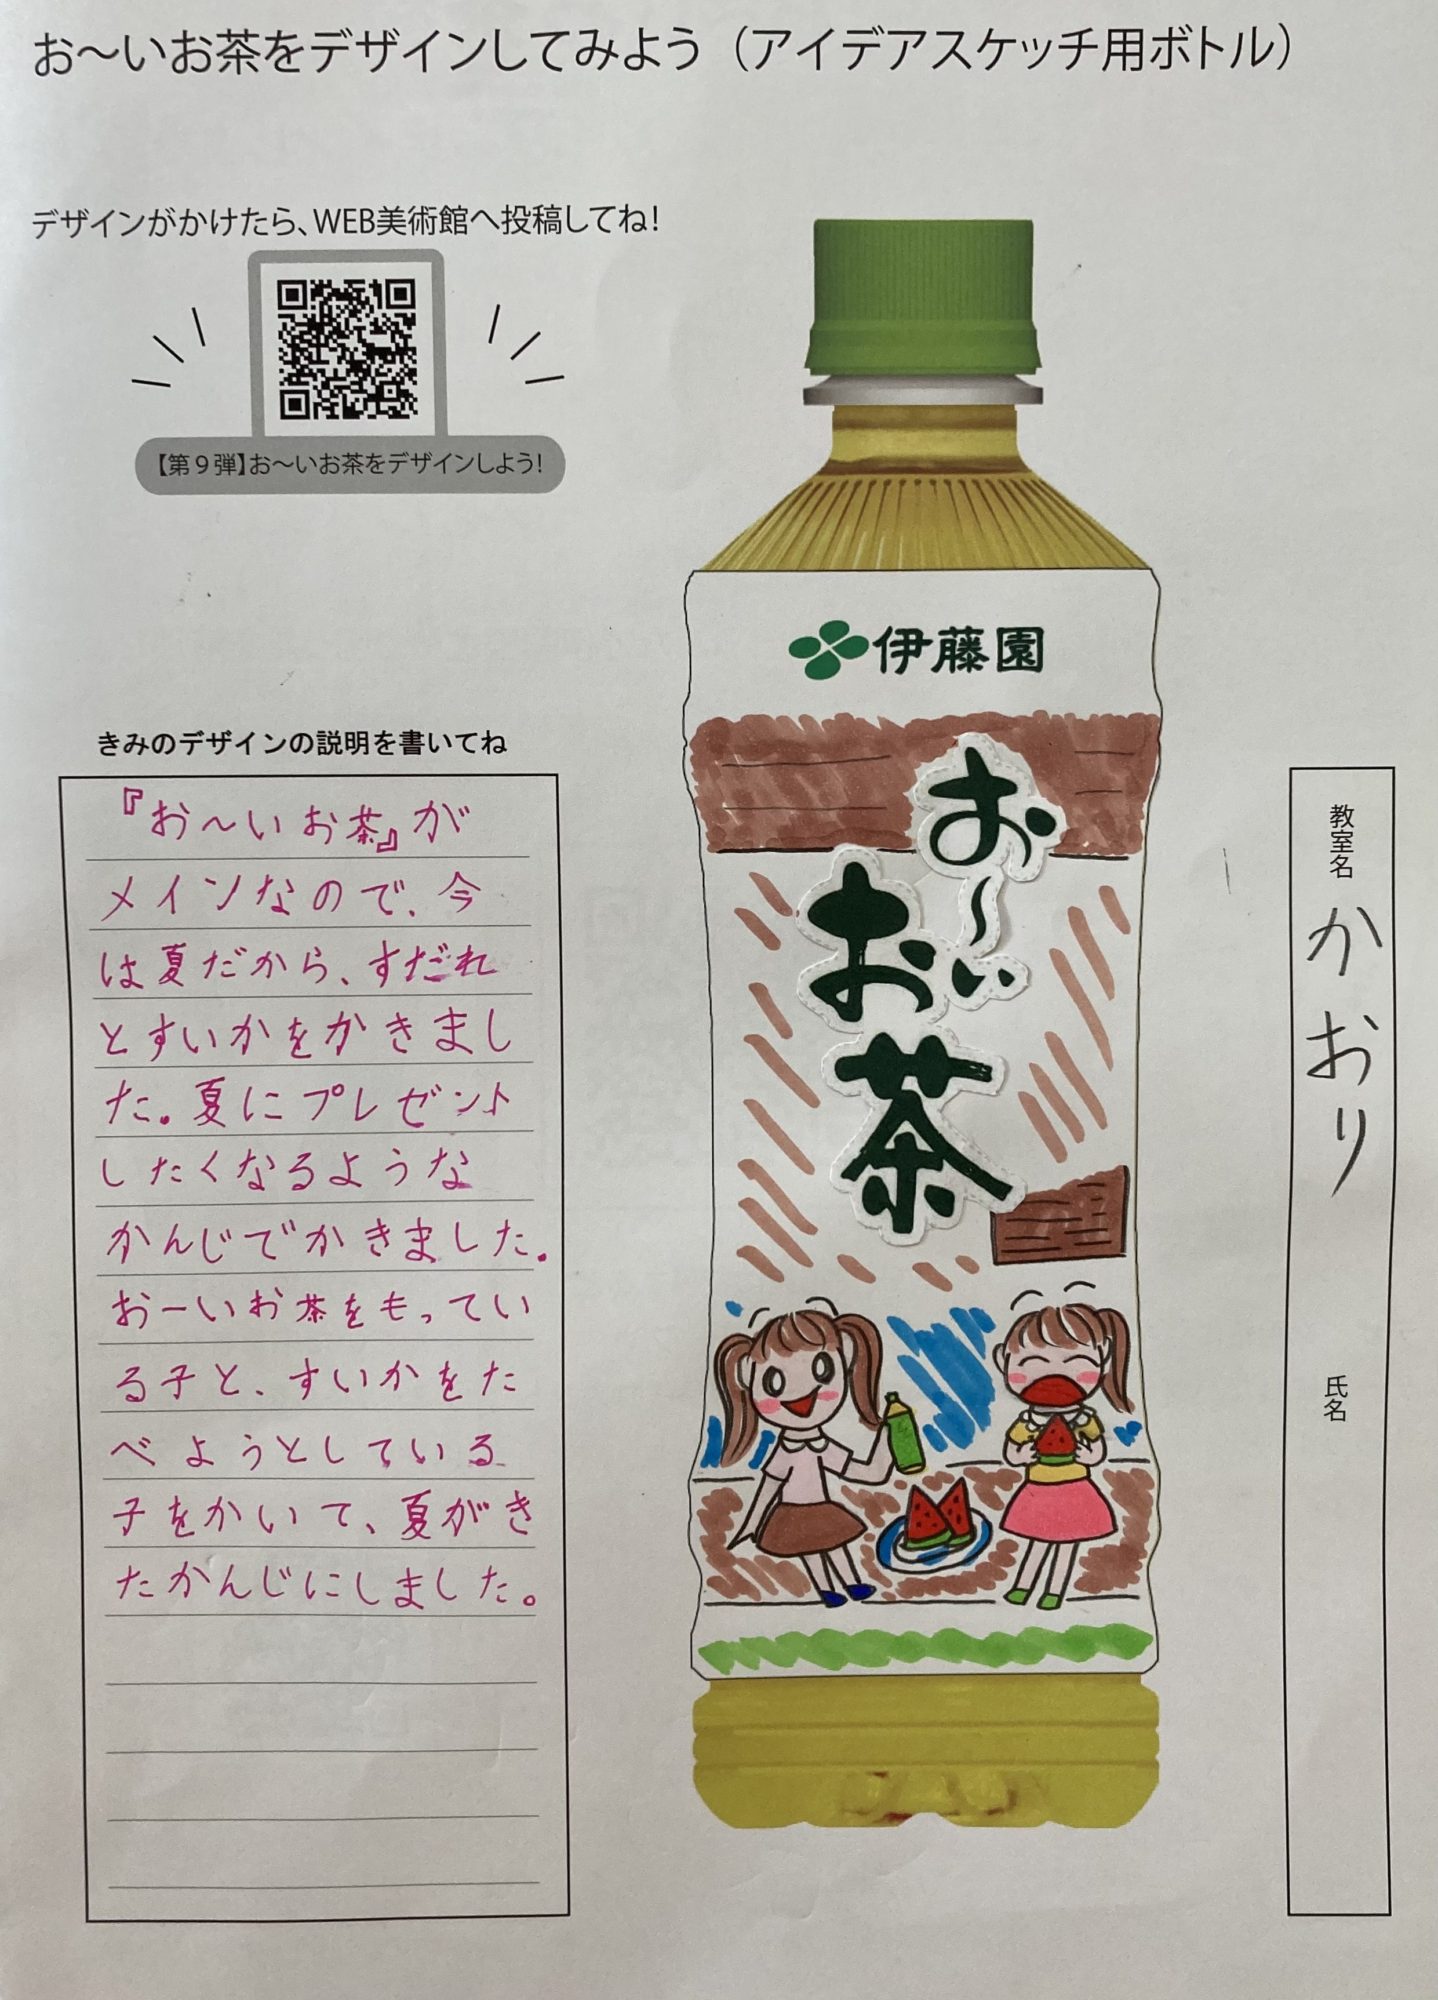 お〜いお茶をデザインしてみよう（アイデアスケッチ用ボトル）
デザインがかけたら、WEB美術館へ投稿してね！
【第９弾】お〜いお茶をデザインしよう！
きみのデザインの説明を書いてね
『お〜いお茶』が
メインなので、今
は夏だから、すだれ
とすいかをかきまし
た。夏にプレゼント
したくなるような
かんじでかきました。
おーいお茶をもってい
る子と、すいかをた
べようとしている
子をかいて、夏がき
たかんじにしました。
伊藤園
お〜い
お茶
教室名
かおり
氏名